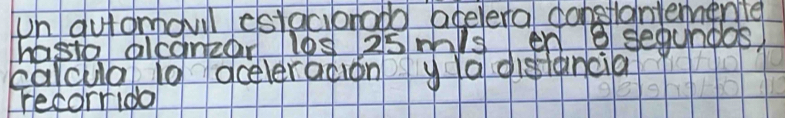 un automovil estacionado acelera constantemente
hasta alcanzar los 25 m/s en 8 segundos,
calcula la aceleración y la distancia
recorrido